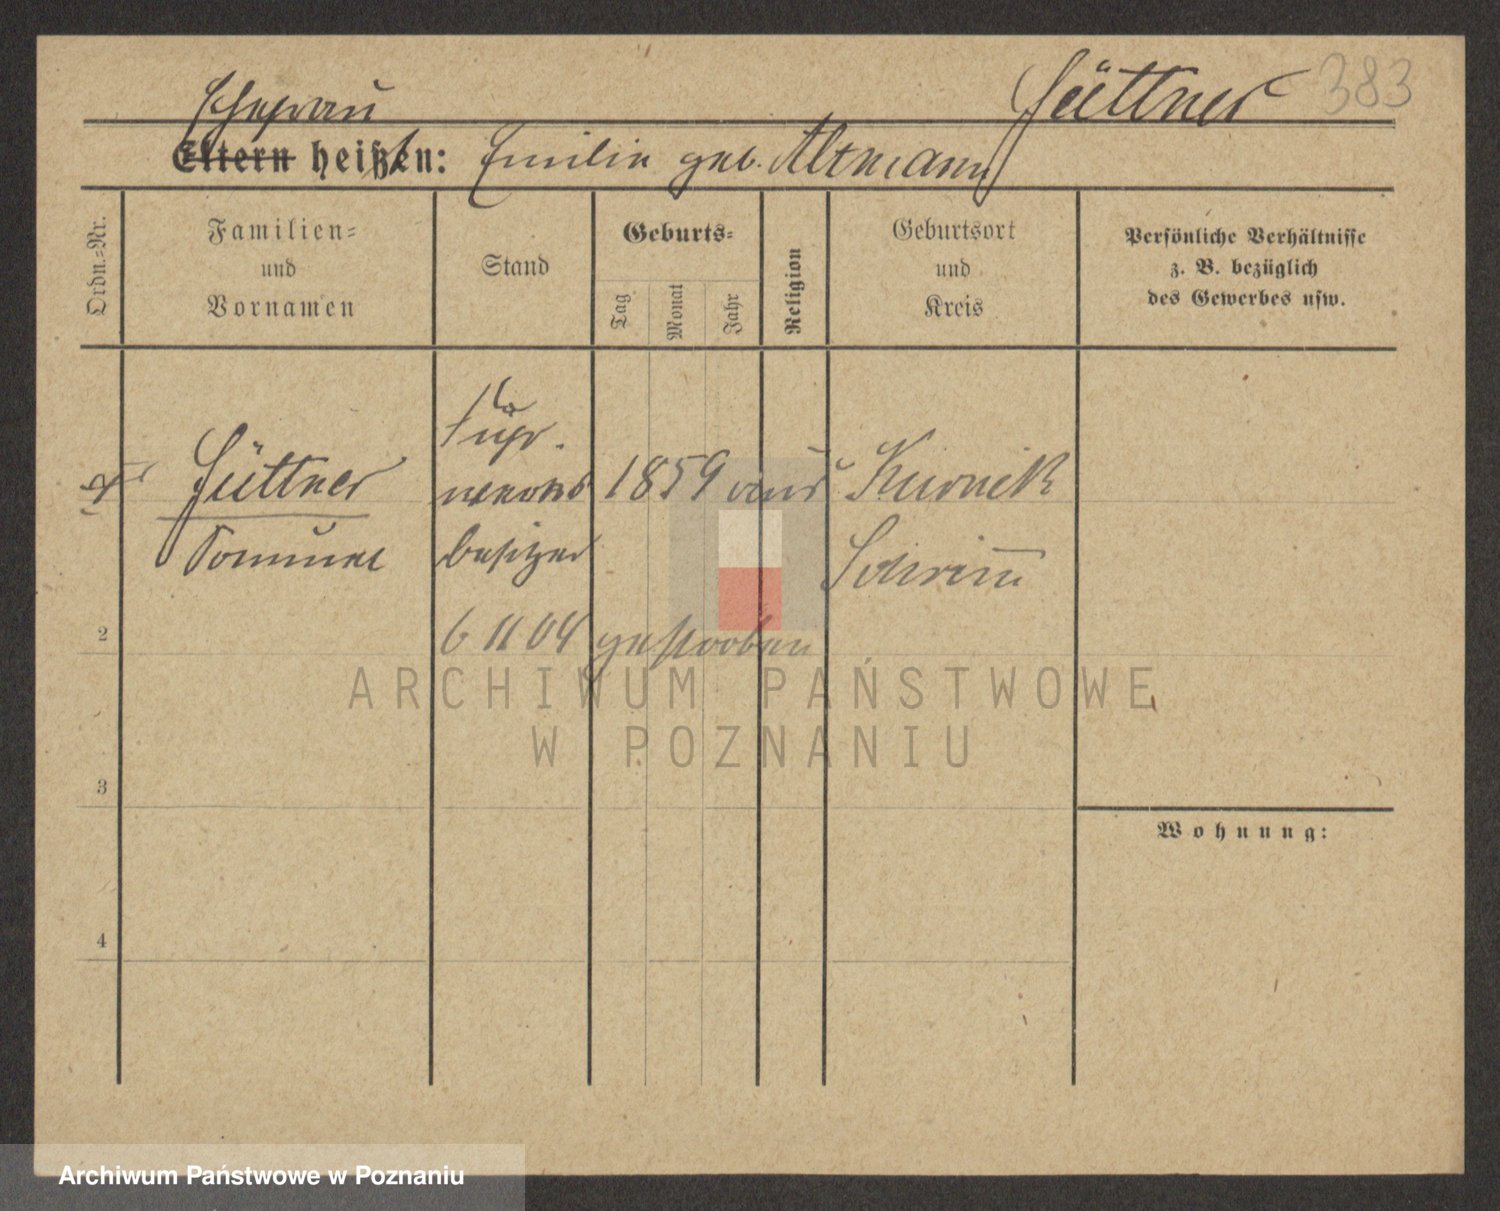 Hüttner 383
Ehefrau
Eltern heißen: Emilie geb. Altmann
Ordn.-Nr.
Familien-
und
Vornamen
Stand
Geburts-
Tag
Monat
Jahr
Religion
Geburtsort
und
Kreis
Persönliche Verhältnisse
z. B. bezüglich
des Gewerbes usw.
Hüttner
Samuel
Fuhr-
werks
besitzer
1859 aus Kurnik
Schrimm
2
6 11 04 gestorben
3
4
Wohnung:
ARCHIWUM PAŃSTWOWE
W POZNANIU
Archiwum Państwowe w Poznaniu